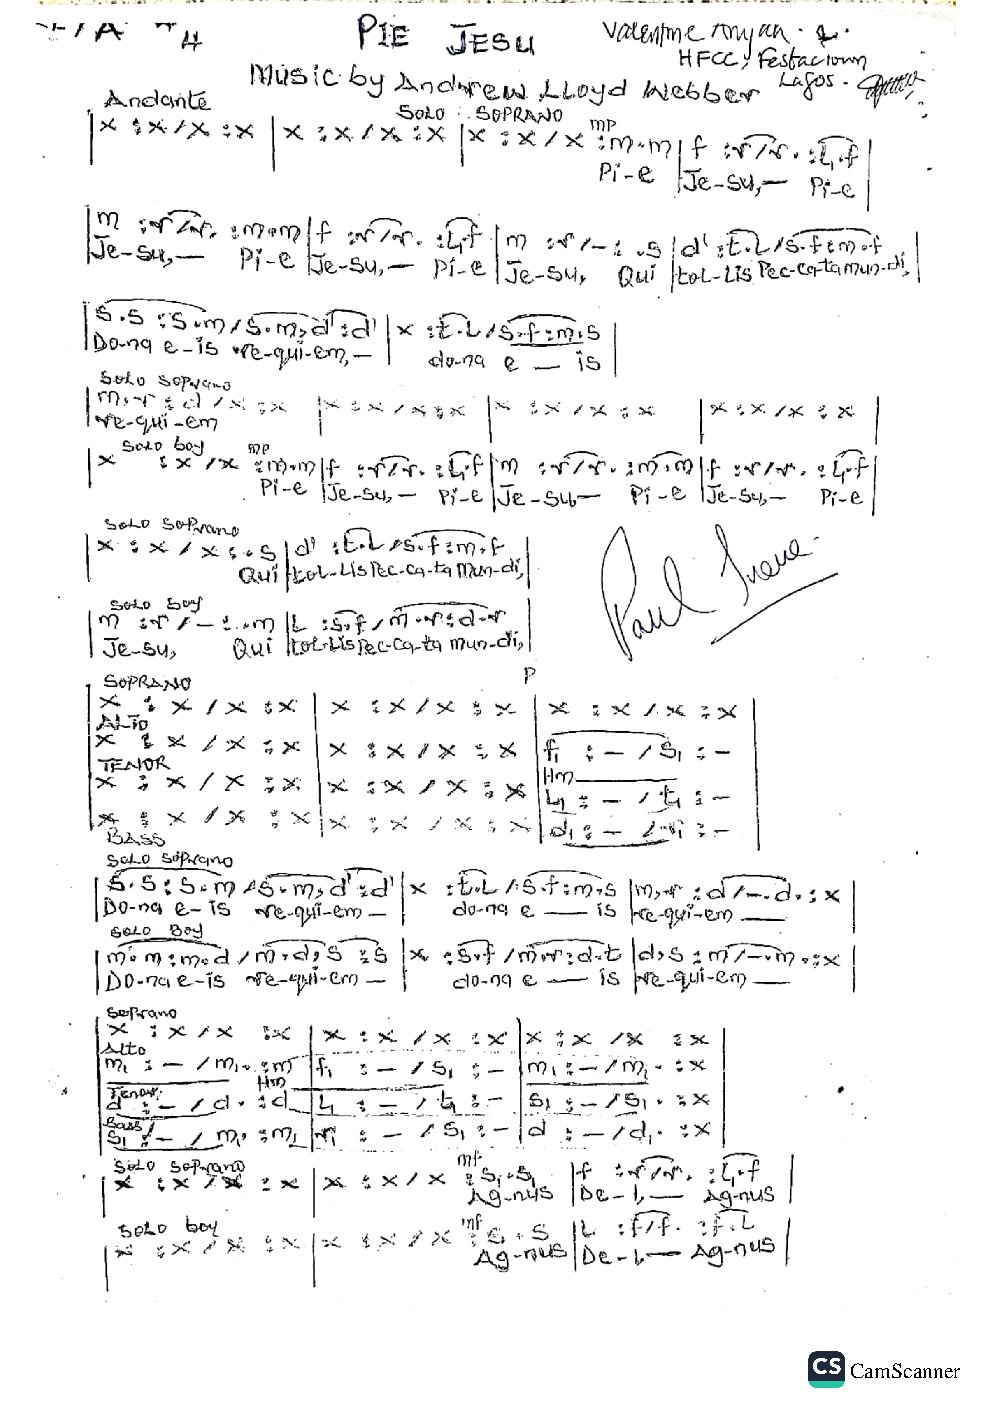 PIE JESU
Valentine
HFCC, Festac Town
Lagos.
Music by Andrew Lloyd Webber
Andante
SOLO SOPRANO
mp
| x : x / x : x | x : x / x : x | x : x / x : m.m | f : r / r. : l₁.f |
Pi-e Je-su,— Pi-e
| m : r / r. : m.m | f : r / r. : l₁.f | m : r / - : .s | d' : t.l / s.f : m.f |
Je-su,— Pi-e Je-su,— Pi-e Je-su, Qui tol-lis Pec-ca-ta mun-di,
| s.s : s.m / s.m, d' : d' | x : t.l / s.f : m.s |
Do-na e-is re-qui-em,— do-na e — is
SOLO SOPRANO
| m.r : d / x : x | x : x / x : x | x : x / x : x | x : x / x : x |
re-qui-em
SOLO boy mp
| x : x / x : m.m | f : r / r. : l₁.f | m : r / r. : m.m | f : r / r. : l₁.f |
Pi-e Je-su,— Pi-e Je-su,— Pi-e Je-su,— Pi-e
SOLO SOPRANO
| x : x / x : .s | d' : t.l / s.f : m.f |
Qui tol-lis Pec-ca-ta mun-di,
SOLO boy
| m : r / - : .m | l : s.f / m.r : d.r |
Je-su, Qui tol-lis Pec-ca-ta mun-di,
Paul
P
SOPRANO
| x : x / x : x | x : x / x : x | x : x / x : x |
ALTO
| x : x / x : x | x : x / x : x | f₁ : - / s₁ : - |
TENOR Hm
| x : x / x : x | x : x / x : x | l₁ : - / t₁ : - |
| x : x / x : x | x : x / x : x | d₁ : - / r₁ : - |
BASS
SOLO SOPRANO
| s.s : s.m / s.m, d' : d' | x : t.l / s.f : m.s | m,r : d / -.d. : x |
Do-na e-is re-qui-em — do-na e — is re-qui-em —
SOLO Boy
| m.m : m.d / m.d, s : s | x : s.f / m.r : d.t | d,s : m / -.m. : x |
Do-na e-is re-qui-em — do-na e — is re-qui-em —
Soprano
| x : x / x : x | x : x / x : x | x : x / x : x |
Alto
| m₁ : - / m₁. : m | f₁ : - / s₁ : - | m₁ : - / m₁. : x |
Tenor Hm
| d : - / d. : d | l₁ : - / t₁ : - | s₁ : - / s₁. : x |
Bass
| s₁ : - / m₁ : m₁ | r₁ : - / s₁ : - | d : - / d₁. : x |
SOLO SOPRANO mf
| x : x / x : x | x : x / x : s₁.s₁ | f : r / r. : l₁.f |
Ag-nus De-i,— Ag-nus
SOLO boy mf
| x : x / x : x | x : x / x : s.s | l : f / f. : f.l |
Ag-nus De-i,— Ag-nus
CS CamScanner